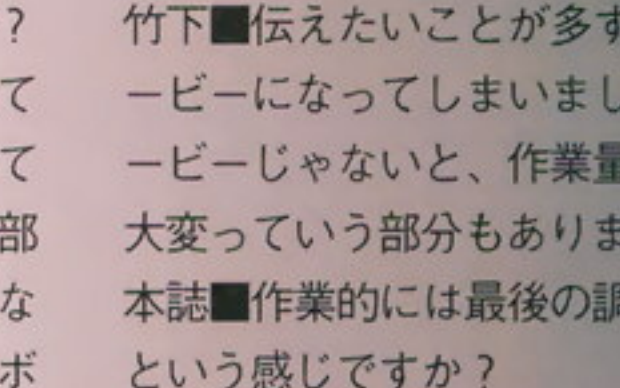 ?
て
て
部
な
ボ
竹下■伝えたいことが多す
ービーになってしまいまし
ービーじゃないと、作業量
大変っていう部分もありま
本誌■作業的には最後の調
という感じですか?